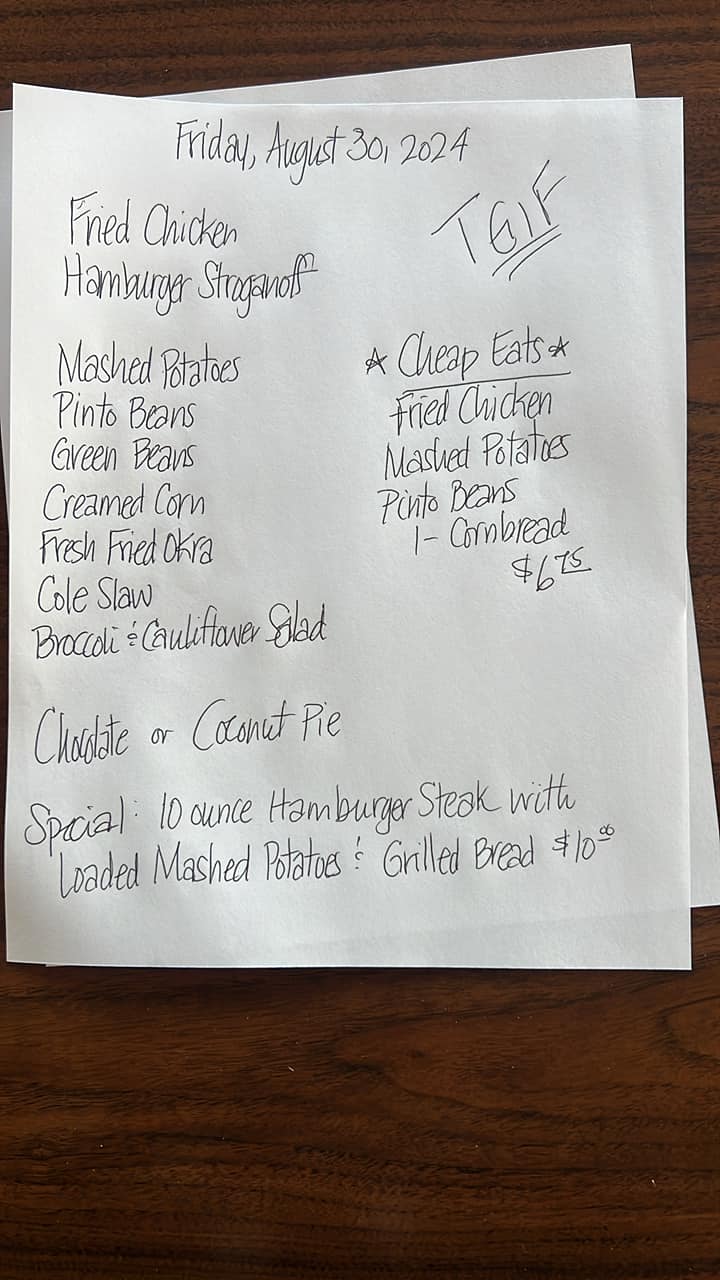 Friday, August 30, 2024
TGIF
Fried Chicken
Hamburger Stroganoff
Mashed Potatoes
Pinto Beans
Green Beans
Creamed Corn
Fresh Fried Okra
Cole Slaw
Broccoli & Cauliflower Salad
☆ Cheap Eats ☆
Fried Chicken
Mashed Potatoes
Pinto Beans
1- Cornbread
$6.75
Chocolate or Coconut Pie
Special: 10 ounce Hamburger Steak with
Loaded Mashed Potatoes & Grilled Bread $10.00